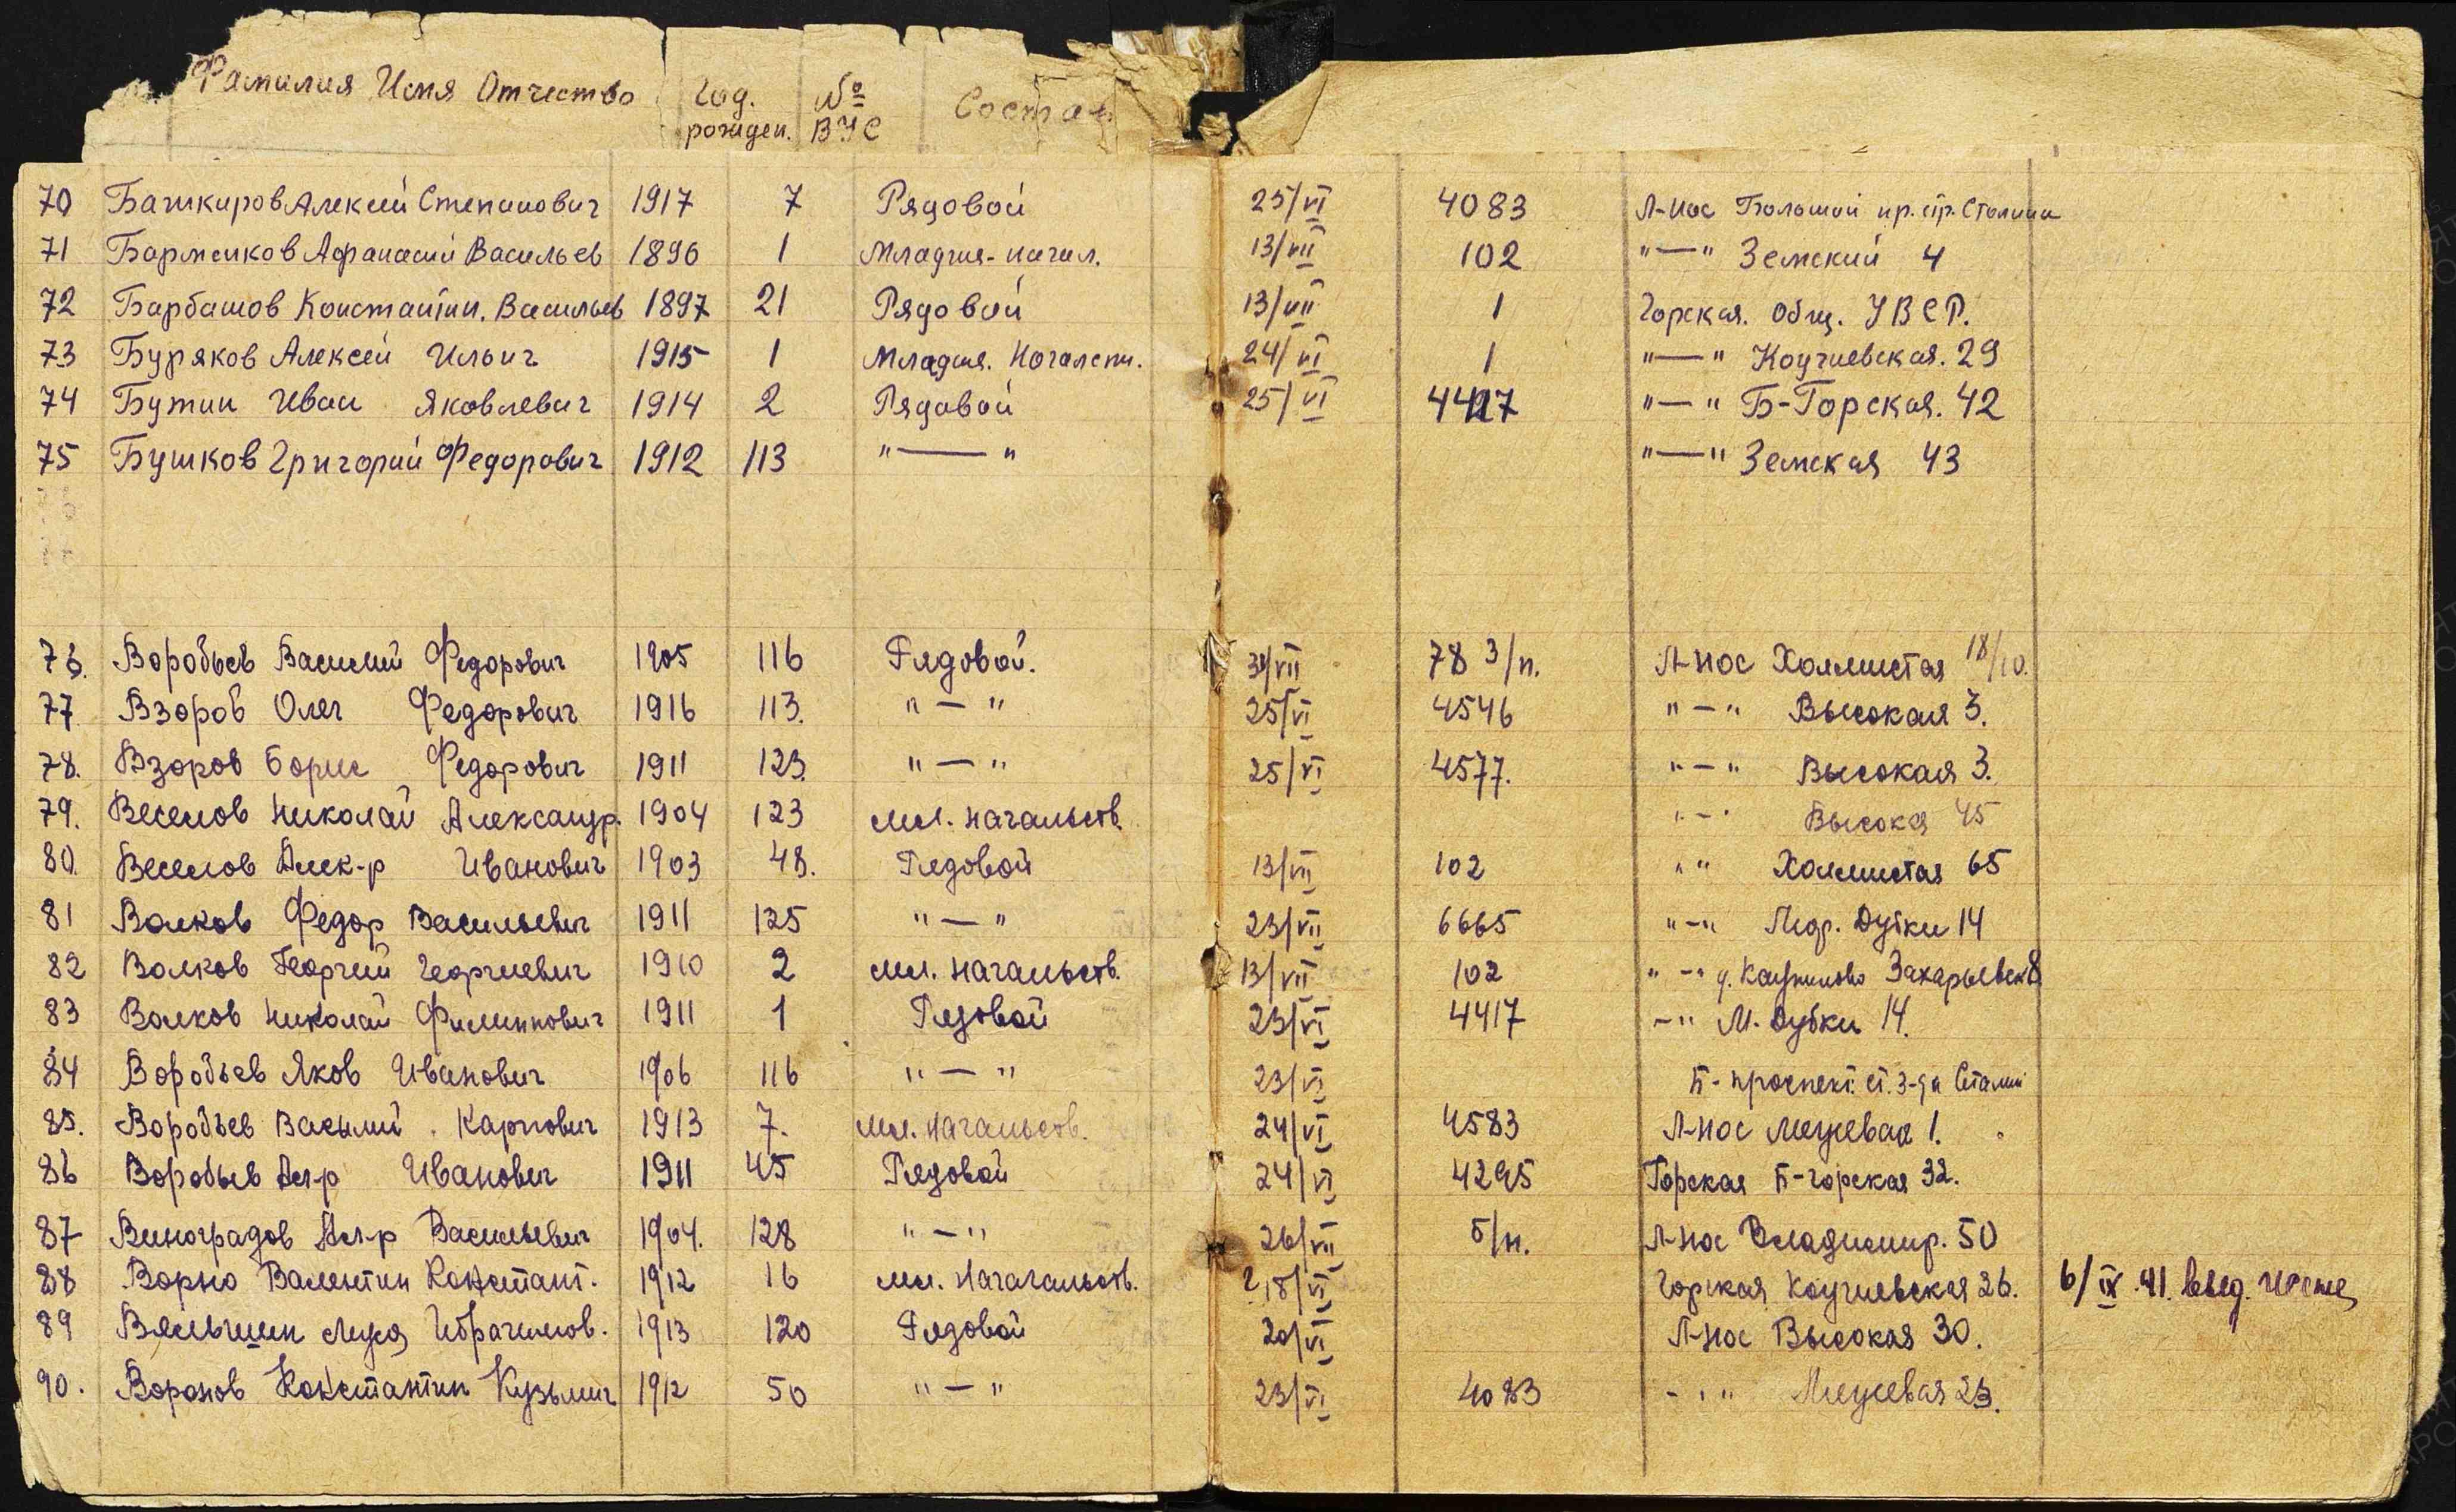 Фамилия Имя Отчество Год. рожден. № ВУС Состав
70 Башкиров Алексей Степанович 1917 7 Рядовой 25/VI 4083 Л-Нос Большой пр. стр. Сталина
71 Барменков Афанасий Васильев 1896 1 Младш. начал. 13/VII 102 "—" Земский 4
72 Барбашов Константин. Васильев 1897 21 Рядовой 13/VII 1 Горская. Общ. УВСР.
73 Буряков Алексей Ильич 1915 1 Младш. Началсти. 24/VI 1 "—" Коучиевская. 29
74 Бутин Иван Яковлевич 1914 2 Рядовой 25/VI 4417 "—" Б-Горская. 42
75 Бушков Григорий Федорович 1912 113 "—" "—" Земская 43
76. Воробьев Василий Федорович 1905 116 Рядовой. 3/VII 78 з/п. Л-Нос Холмистая 18/10.
77 Взоров Олег Федорович 1916 113. "—" 25/VI 4546 "—" Высокая 3.
78. Взоров Борис Федорович 1911 123. "—" 25/VI 4577. "—" Высокая 3.
79. Веселов Николай Александр. 1904 123 мл. начальств. "—" Высокая 45
80. Веселов Алек-р Иванович 1903 48. Рядовой 13/VII 102 " " Холмистая 65
81 Волков Федор Васильевич 1911 125 "—" 23/VII 6665 "—" Дубки 14
82 Волков Георгий Георгиевич 1910 2 мл. начальств. 13/VII 102 "—" д. Захарьевск 8
83 Волков Николай Филиппович 1911 1 Рядовой 23/VI 4417 —" М. Дубки 14.
84 Воробьев Яков Иванович 1906 116 "—" 23/VI Б-проспект. ст. З-да Сталин
85. Воробьев Василий Карпович 1913 7. мл. начальств. 24/VI 4583 Л-нос Межевая 1.
86 Воробьев Ал-р Иванович 1911 45 Рядовой 24/VI 4295 Горская Б-горская 32.
87 Виноградов Ал-р Васильевич 1904. 128 "—" 26/VII б/н. Л-нос Владимир. 50
88 Ворно Валентин Констант. 1912 16 мл. Началальств. 18/VI Горская Коучиевская 26. 6/IX.41.
89 Вяльшин Муса Ибрагимов. 1913 120 Рядовой 20/VI Л-нос Высокая 30.
90. Воронов Константин Кузьмич 1912 50 "—" 23/VI 4083 - " Межевая 23.